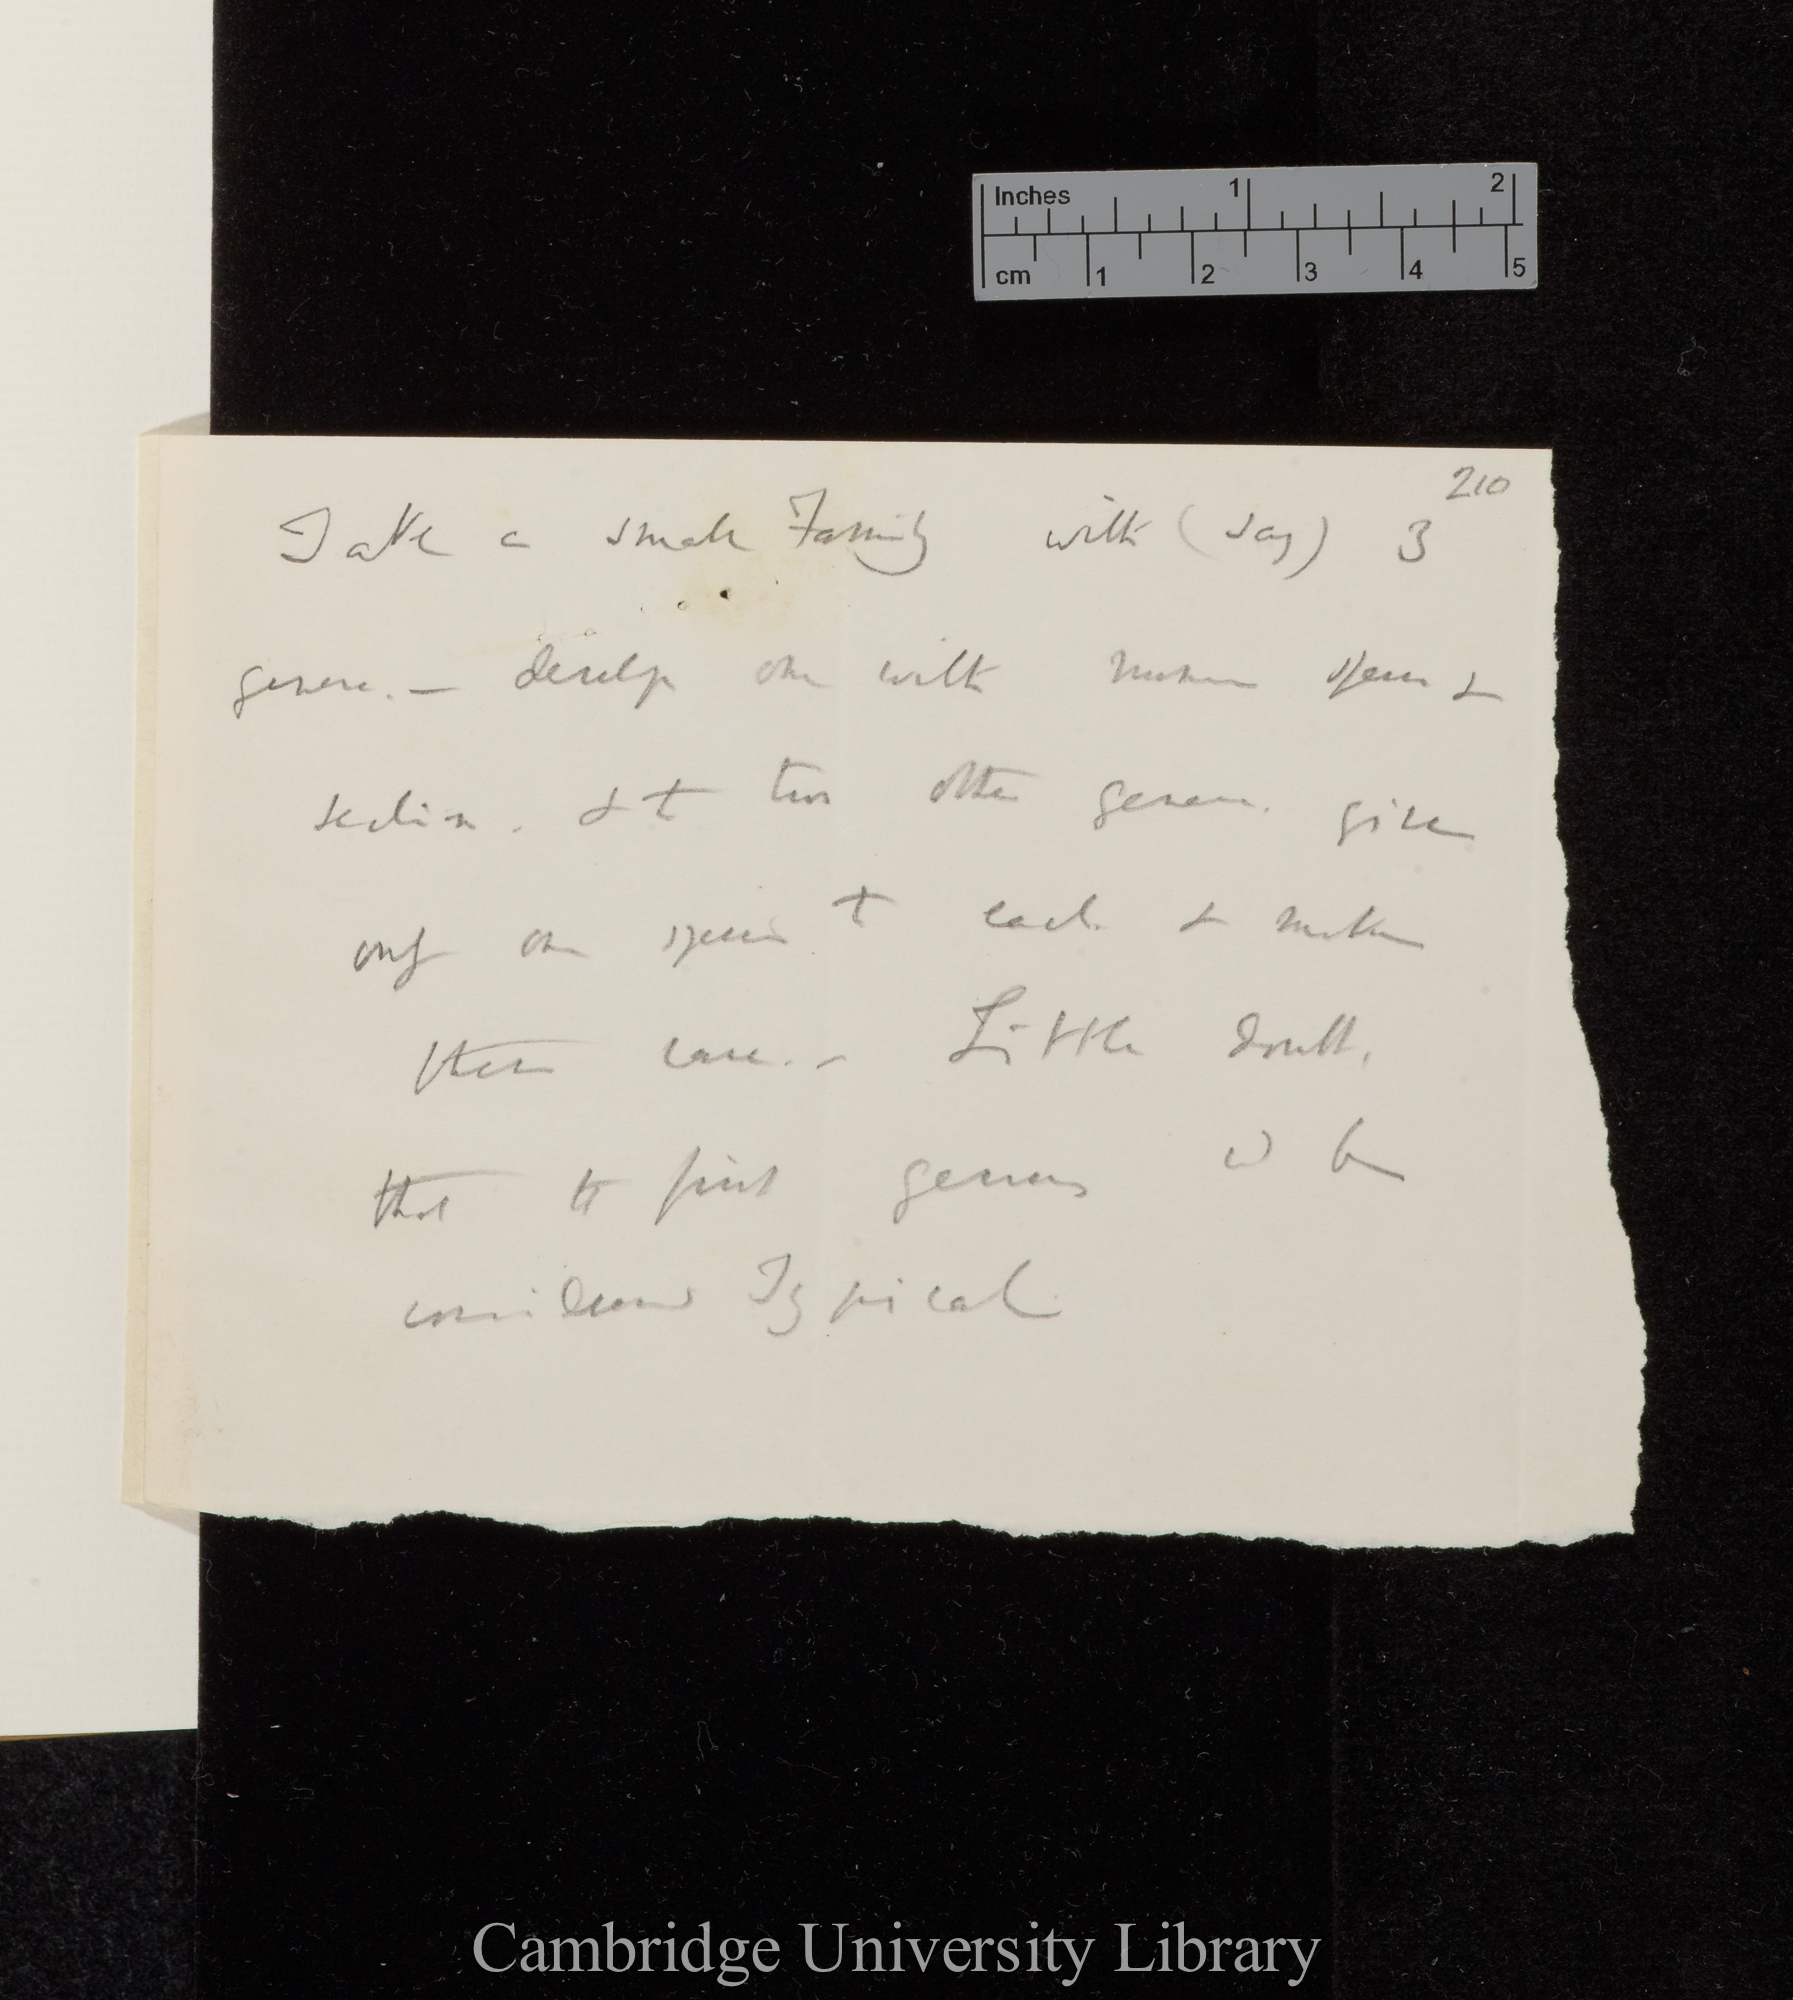 Inches 1 2
cm 1 2 3 4 5
210
Take a small Family with (say) 3
genera. — develope one with numerous species &
section. & the two other genera. given
only one species to each. & make
them rare. — Little doubt.
that the first genus wd be
considered Typical
Cambridge University Library